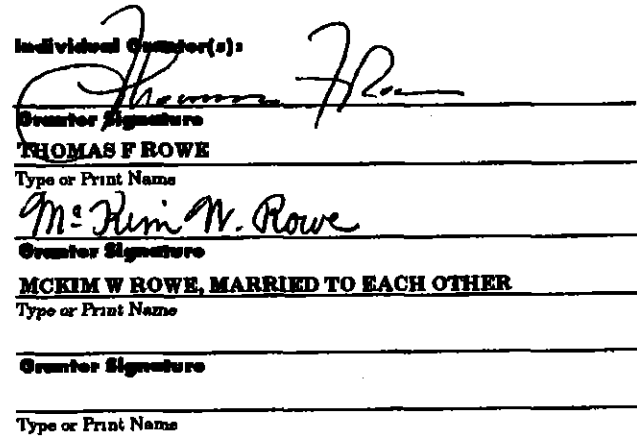 Individual Grantor(s):
Thomas F Rowe
Grantor Signature
THOMAS F ROWE
Type or Print Name
McKim W. Rowe
Grantor Signature
MCKIM W ROWE, MARRIED TO EACH OTHER
Type or Print Name
Grantor Signature
Type or Print Name